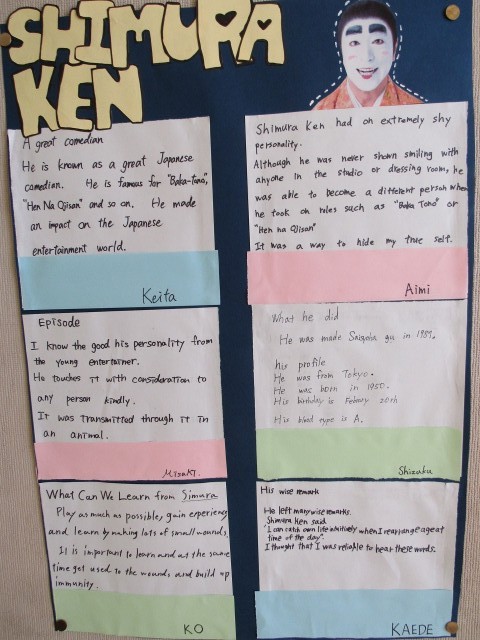 SHIMURA
KEN
A great comedian
He is known as a great Japanese
comedian. He is famous for "Baka-Tono",
"Hen Na Ojisan" and so on. He made
an impact on the Japanese
entertainment world.
Keita
Shimura Ken had an extremely shy
personality.
Although he was never shown smiling with
anyone in the studio or dressing room, he
was able to become a different person when
he took on roles such as "Baka Tono" or
"Hen na Ojisan"
It was a way to hide my true self.
Aimi
Episode
I know the good his personality from
the young entertainer.
He touches it with consideration to
any person kindly.
It was transmitted through it in
an animal.
Misaki.
What he did
He was made Saigoha gu in 1987.
his profile
He was from Tokyo.
He was born in 1950.
His birthday is Febuary 20th
His blood type is A.
Shizuku
What Can We Learn from Simura
Play as much as possible, gain experience
and learn by making lots of small wounds.
It is important to learn and at the same
time get used to the wounds and build up
immunity.
KO
His wise remark
He left many wise remarks.
Shimura Ken said
"I can catch own life intuitively when I rearrange age at
time of the day".
I thought that I was reliable to hear these words.
KAEDE